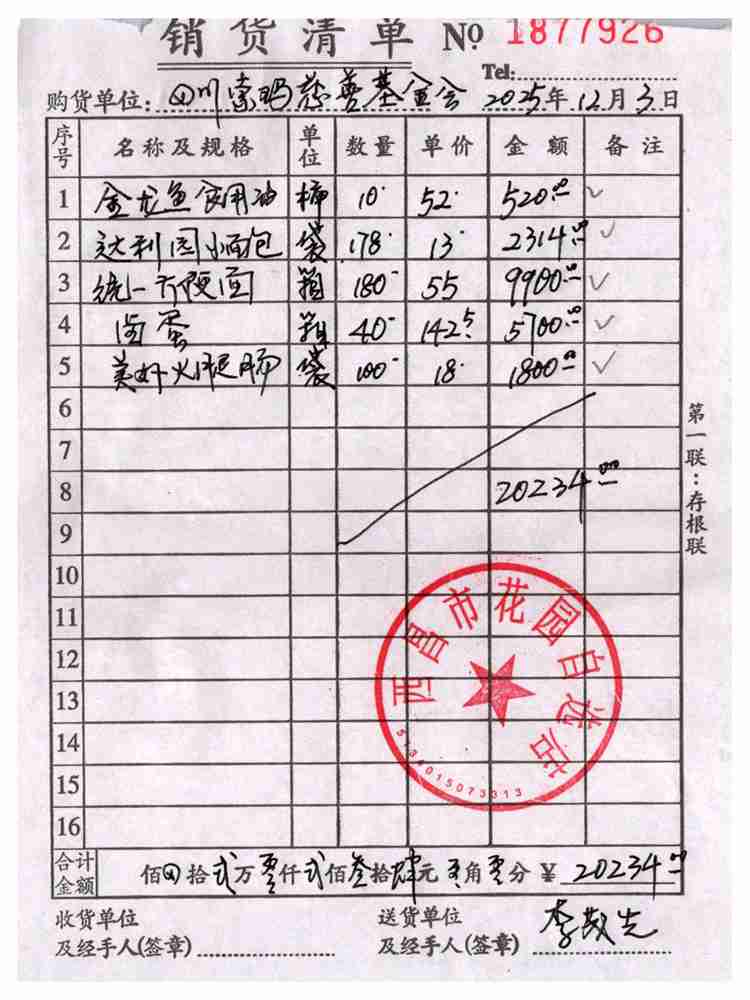 销货清单 № 1877926
Tel:
购货单位: 四川索玛慈善基金会 2025年12月3日
序号 名称及规格 单位 数量 单价 金额 备注
1 金龙鱼食用油 桶 10 52 520.00 ✓
2 达利园小面包 袋 178 13 2314.00 ✓
3 统一方便面 箱 180 55 9900.00 ✓
4 卤蛋 箱 40 142.5 5700.00 ✓
5 美好火腿肠 袋 100 18 1800.00 ✓
6
7
8 20234.00
9
10
11
12
13
14
15
16
第一联:存根联
西昌市花园自选店
5134015073313
合计金额 佰 拾贰万零仟贰佰叁拾肆元零角零分 ¥ 20234.00
收货单位 送货单位
及经手人(签章) 及经手人(签章)